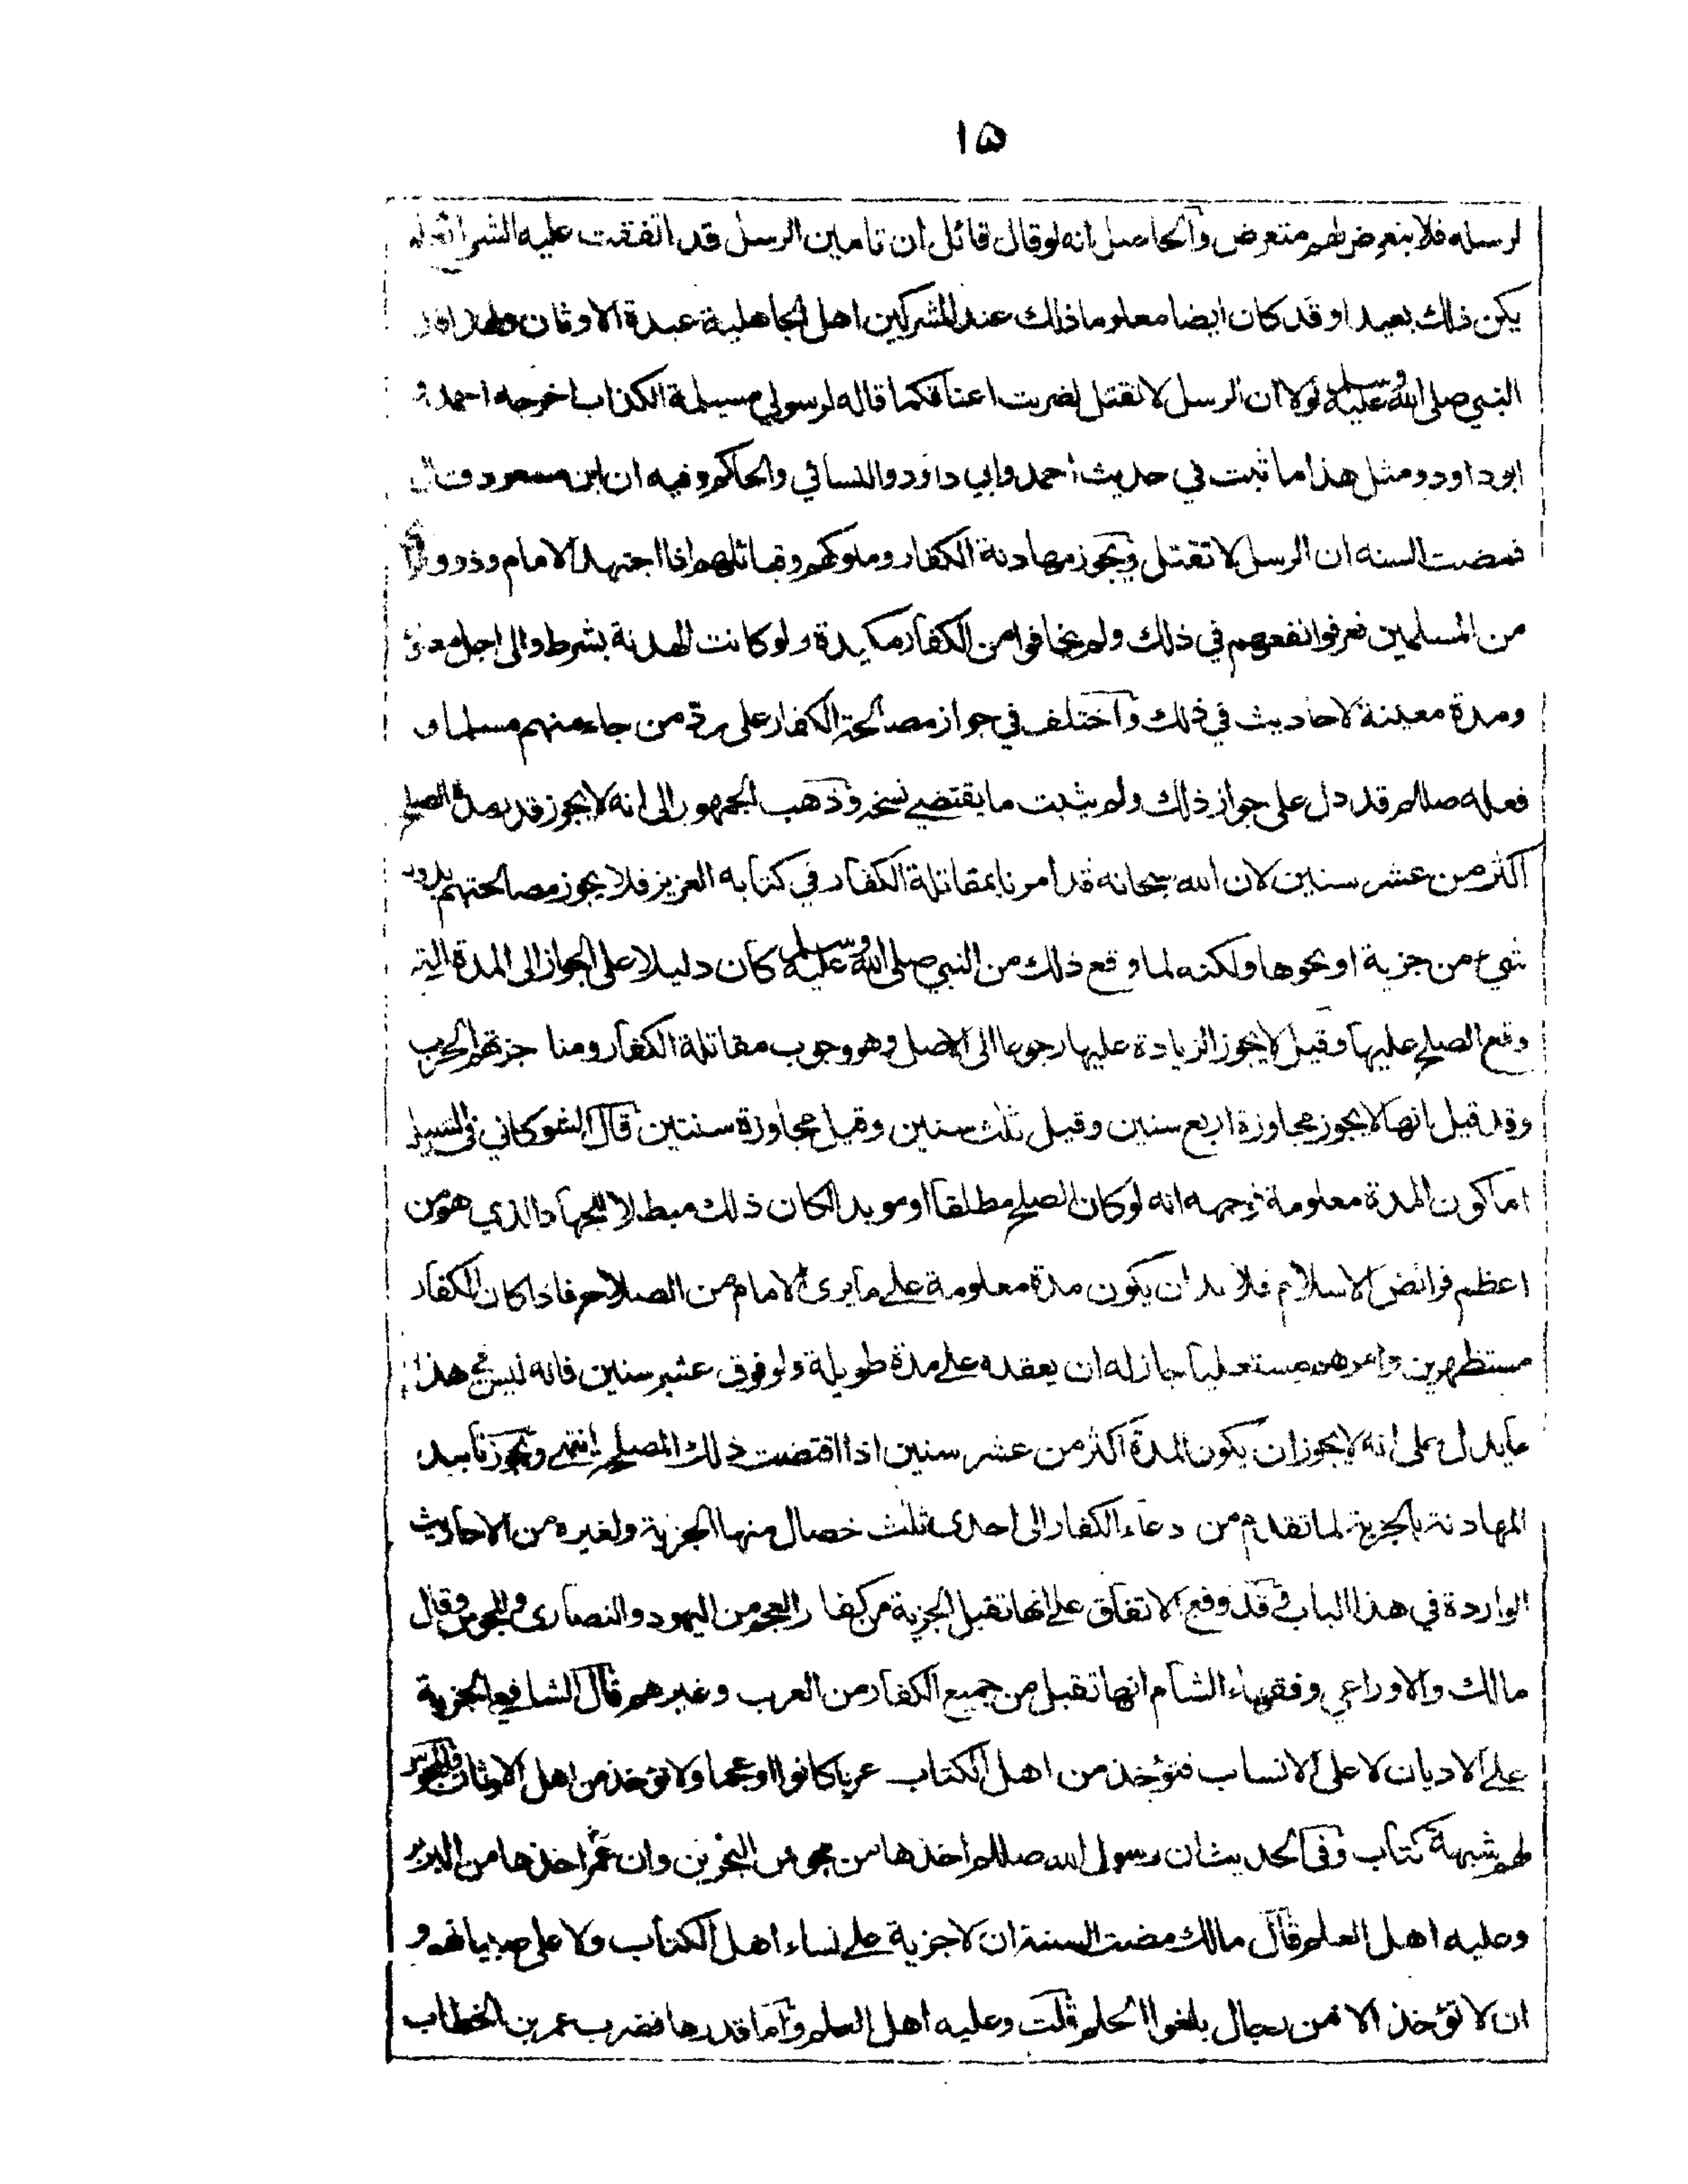 ١٥
لرسله فلا يتعرض لهم متعرض والحاصل انه لو قال قائل ان تامين الرسل قد اتفقت عليه الشرائع لم
يكن ذلك بعيدا وقد كان ايضا معلوما ذلك عند المشركين اهل الجاهلية عبدة الاوثان ولهذا قال
النبي صلى الله عليه وسلم لولا ان الرسل لا تقتل لضربت اعناقكما قاله لرسولي مسيلمة الكذاب اخرجه احمد و
ابوداود ومثل هذا ما ثبت في حديث احمد وابي داود والنسائي والحاكم وفيه ان ابن مسعود قال
فمضت السنه ان الرسل لا تقتل ويجوز مهادنة الكفار وملوكهم وقبائلهم اذا اجتهد الامام وذوو
من المسلمين فعرفوا نفعهم في ذلك ولم يخافوا من الكفار مكيدة ولو كانت الهدنة بشرط والى اجل
ومدة معينة لاحاديث في ذلك واختلف في جواز مصالحة الكفار على رد من جاء منهم مسلما و
فعله صللم قد دل على جواز ذلك ولم يثبت ما يقتضي نسخه وذهب الجمهور الى انه لا يجوز قدر مدة الصلح
اكثر من عشر سنين لان الله سبحانه قد امرنا بمقاتلة الكفار في كتابه العزيز فلا يجوز مصالحتهم بدون
شيء من جزية او نحوها ولكنه لما وقع ذلك من النبي صلى الله عليه وسلم كان دليلا على الجواز الى المدة التي
وقع الصلح عليها وقيل لا يجوز الزيادة عليها رجوعا الى الاصل وهو وجوب مقاتلة الكفار ومنا جزتهم الحرب
وقد قيل انها لا يجوز مجاوزة اربع سنين وقيل ثلث سنين وقيل مجاوزة سنتين قال الشوكاني في السيل
اما كون المدة معلومة فوجهه انه لو كان الصلح مطلقا او موبدا لكان ذلك مبطلا للجهاد الذي هو من
اعظم فرائض الاسلام فلا بد ان يكون مدة معلومة على ما يرى الامام من الصلاح فاذا كان الكفار
مستظهرين وامرهم مستعليا جاز له ان يعقده على مدة طويلة ولو فوق عشر سنين فانه ليس في هذا
مايدل على انه لا يجوز ان يكون المدة اكثر من عشر سنين اذا اقتضت ذلك المصلحة انتهى ويجوز تابيد
المهادنة بالجزية لما تقدم من دعاء الكفار الى احدى ثلث خصال منها الجزية ولغيره من الاحاديث
الواردة في هذا الباب وقد وقع الاتفاق على انها تقبل الجزية من كفار العجم من اليهود والنصارى والمجوس وقال
مالك والاوزاعي وفقهاء الشام انها تقبل من جميع الكفار من العرب وغيرهم قال الشافعي الجزية
على الاديان لا على الانساب فتؤخذ من اهل الكتاب عربا كانوا او عجما ولا تؤخذ من اهل الاوثان والمجوس
لهم شبهة كتاب وفي الحديث ان رسول الله صللم اخذها من مجوس البحرين وان عمر اخذها من البربر
وعليه اهل العلم قال مالك مضت السنة ان لا جزية على نساء اهل الكتاب ولا على صبيانهم و
ان لا تؤخذ الا من رجال بلغوا الحلم قلت وعليه اهل العلم واما قدرها فضرب عمر بن الخطاب